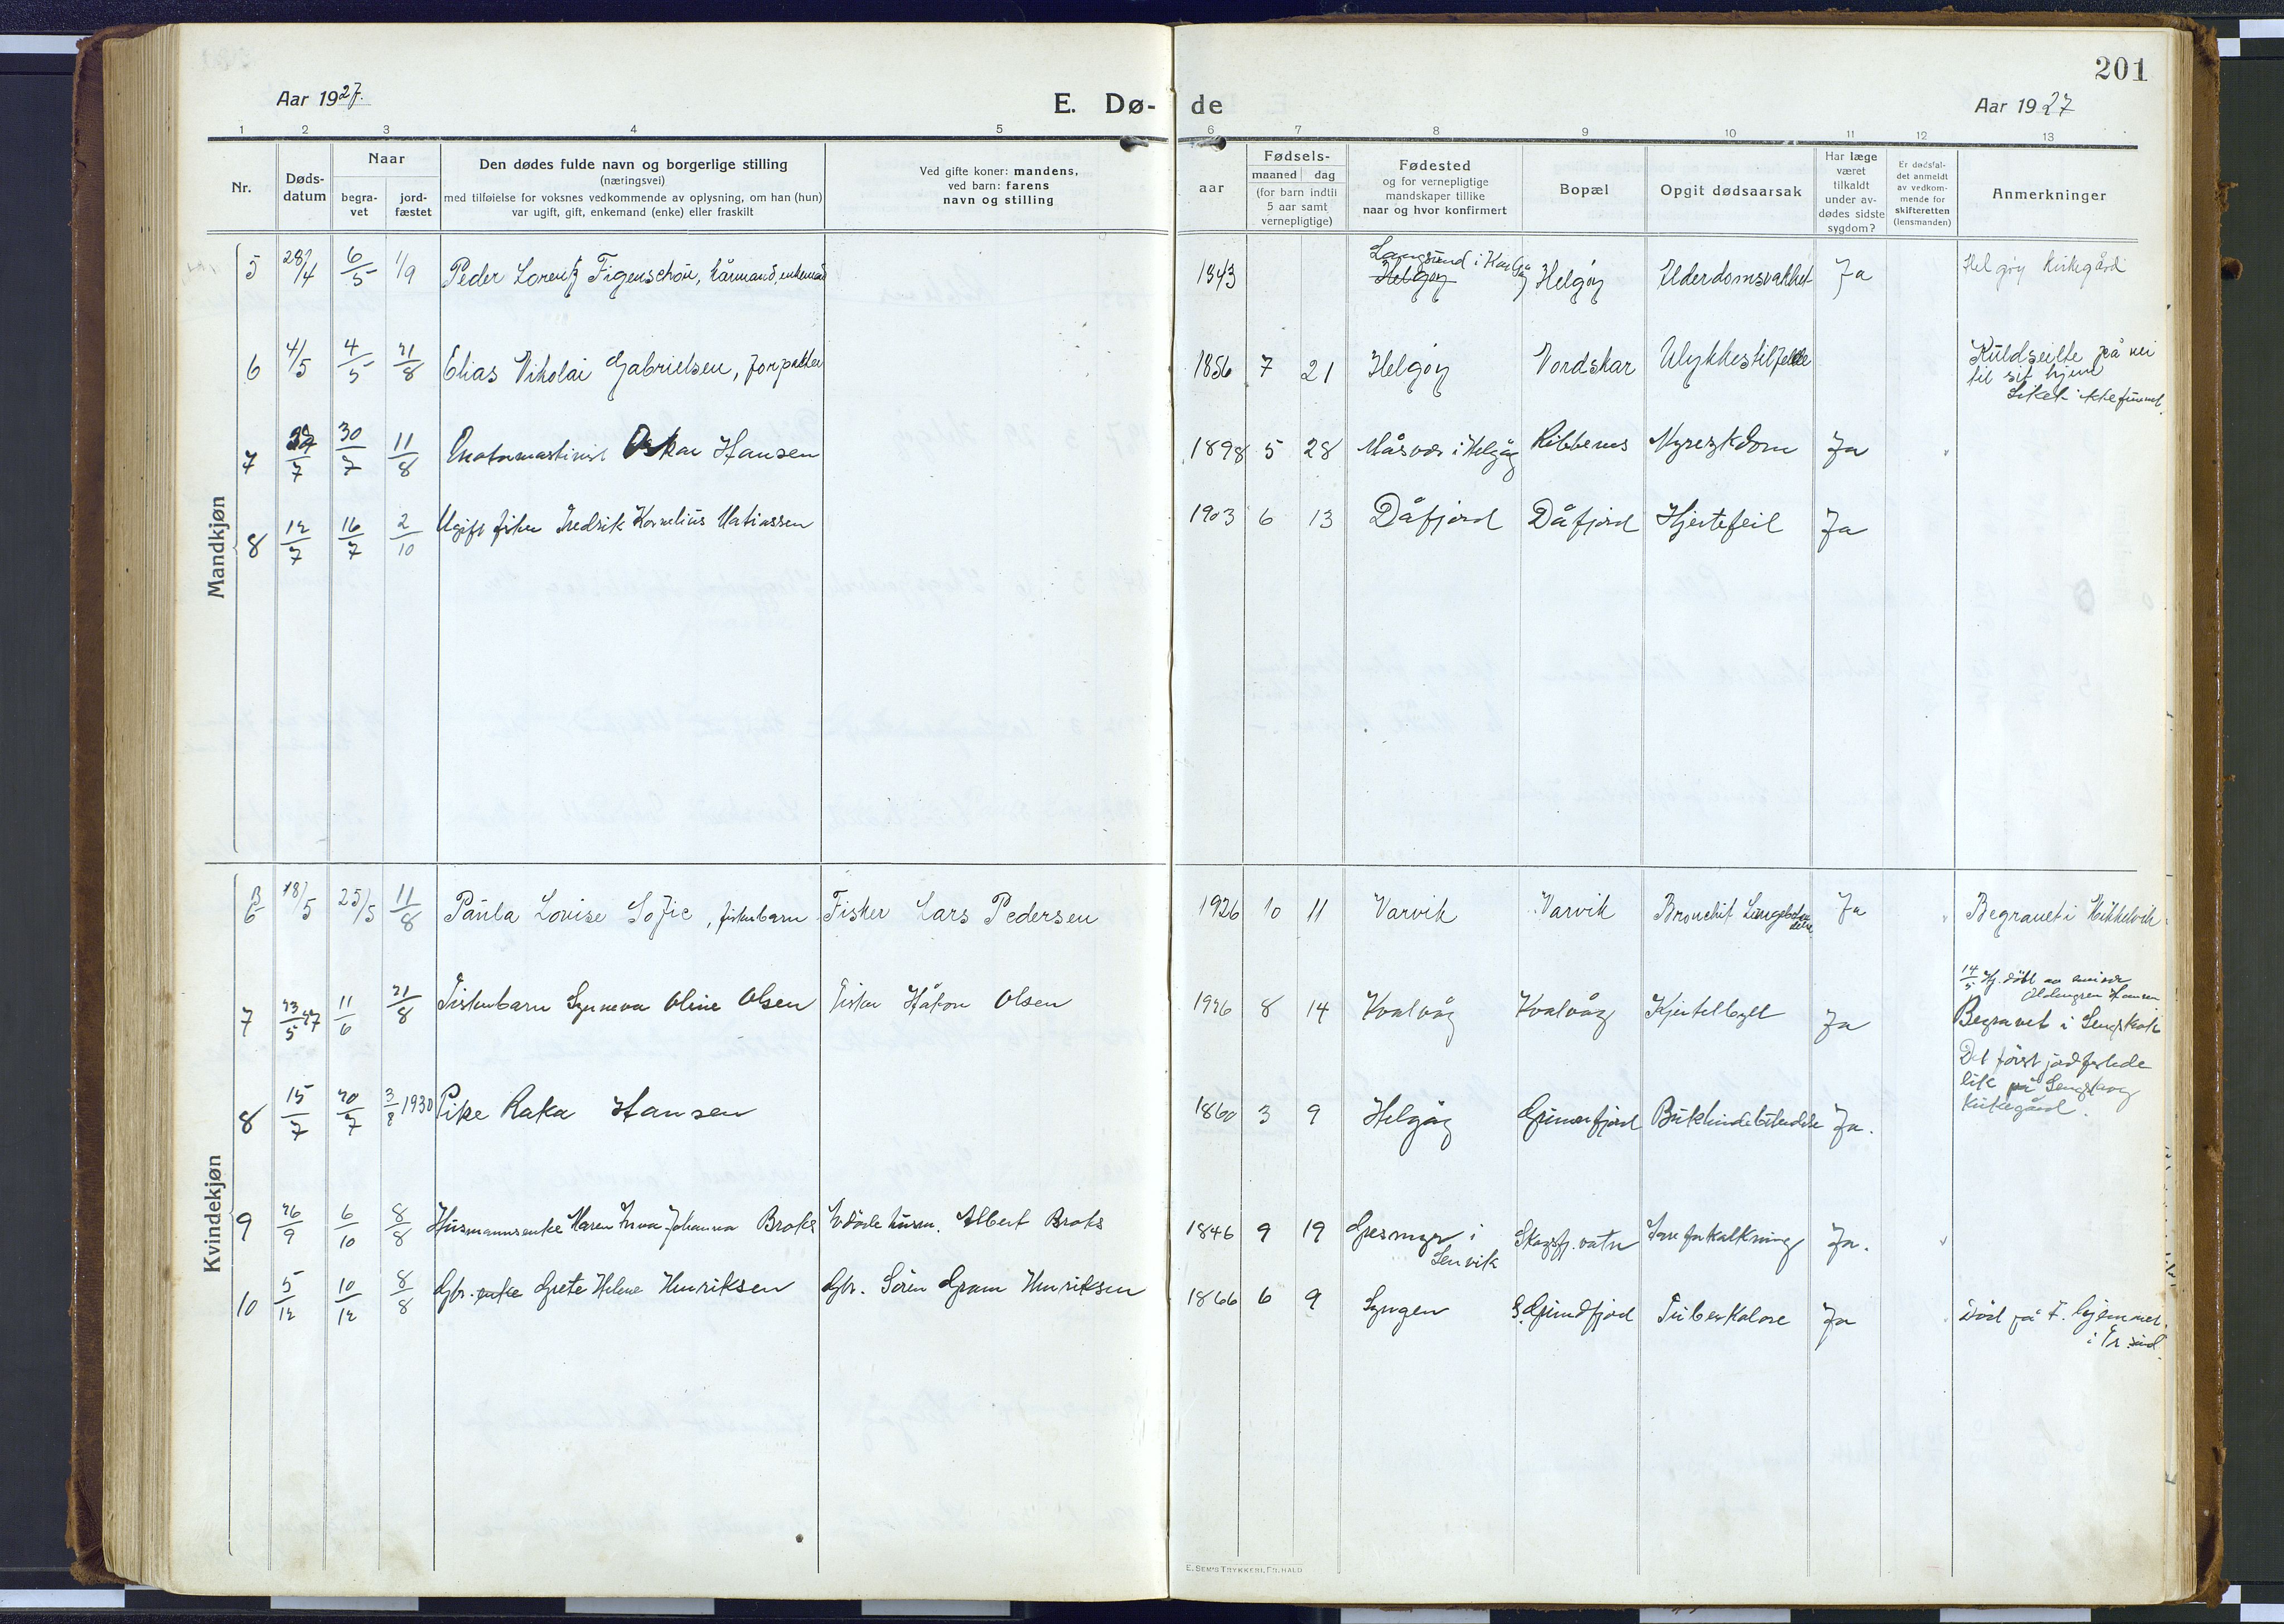 201
Aar 1927.
E. Dø- de
Aar 1927
1 2 3 4 5 6 7 8 9 10 11 12 13
Nr.
Døds-
datum
Naar
begra-
vet
jord-
fæstet
Den dødes fulde navn og borgerlige stilling
(næringsvei)
med tilføielse for voksnes vedkommende av oplysning, om han (hun)
var ugift, gift, enkemand (enke) eller fraskilt
Ved gifte koner: mandens,
ved barn: farens
navn og stilling
aar
Fødsels-
maaned dag
(for barn indtil
5 aar samt
vernepligtige)
Fødested
og for vernepligtige
mandskaper tillike
naar og hvor konfirmert
Bopæl
Opgit dødsaarsak
Har læge
været
tilkaldt
under av-
dødes sidste
sygdom?
Er dødsfal-
det anmeldt
av vedkom-
mende for
skifteretten
(lensmanden)
Anmerkninger
Mandkjøn
5 28/4 6/5 1/9 Peder Lorentz Figenschou, kårmand, enkemand 1843 Langsund i Karlsøy Helgøy Helgøy Elderdomsvakhet Ja Helgøy kirkegård
6 4/5 4/5 21/8 Elias Nikolai Gabrielsen, forpakter 1856 7 21 Helgøy Nordskar Ulykkestilfelde Kuldseilte på vei
til sit hjem
Liket ikke funnet.
7 7 30/7 11/8 Motormaskinist Oskar Hansen 1898 5 28 Måsvær i Helgøy Ribbenes Nyresykdom Ja
8 12/7 16/7 2/10 Ugift fisker Fredrik Kornelius Matiassen 1903 6 13 Dåfjord Dåfjord Hjertefeil Ja
Kvindekjøn
6 18/5 25/5 11/8 Paula Lovise Sofie, fiskerbarn Fisker Lars Pedersen 1926 10 11 Varvik Varvik Bronchit Ja Begravet i Mikkelvik
7 23/5 27 11/6 21/8 Fiskerbarn Synneva Oline Olsen Fisker Håkon Olsen 1926 8 14 Kvalvåg Kvalvåg Kjertel Ja 14/5 Hj. døbt av
Hansen
Begravet i Lengskok
Det først jordfestede
lik på Lengskog
kirkegård.
8 15/7 20/7 3/8 1930 Pike Raka Hansen 1860 3 9 Helgøy Grunnfjord Bukhindebetendelse Ja.
9 26/9 6/10 8/8 Husmannsenke Maren Anna Johanna Broks Avdøde husm. Albert Broks 1846 9 19 Gresmyr i
Lenvik Skogsfj. vatn Åreforkalkning Ja.
10 5/12 10/12 8/8 Gbr. enke Grete Helene Henriksen Gbr. Sören Gram Henriksen 1866 6 9 Lyngen S. Grunnfjord Tuberkolose Ja Död på T. hjemmet
i Ersund.
E. SEM'S TRYKKERI, FR.HALD